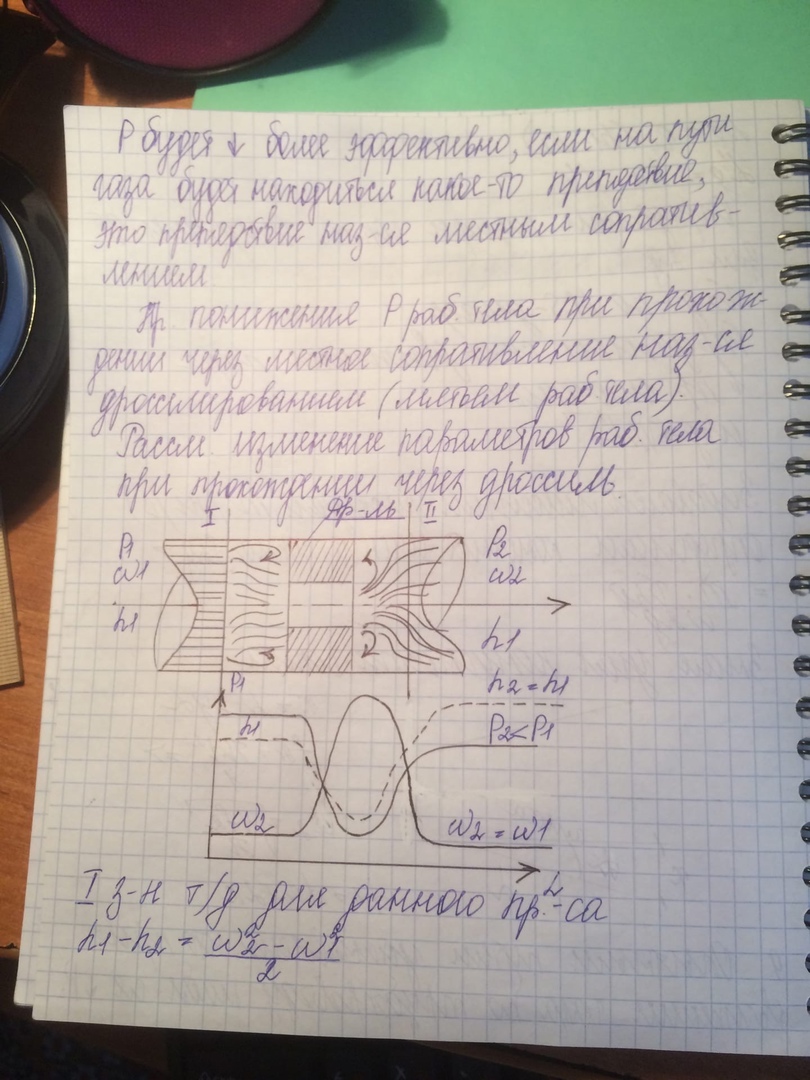 P будет ↓ более эффективно, если на пути
газа будет находиться какое-то препедствие,
это препедствие наз-ся местным сопротив-
лением
Пр. понижения P раб. тела при прохож-
дении через местное сопротивление наз-ся
дросселированием (мятьем раб тела).
Рассм. изменение параметров раб. тела
при прохождении через дроссиль.
I Др-ль II
P1 P2
ω1 ω2
h1 h1
P1 h2 = h1
h1 P2<P1
ω2 ω2 = ω1
L
I з-н т/д для данного пр-са
h1 - h2 = ω2² - ω1² / 2